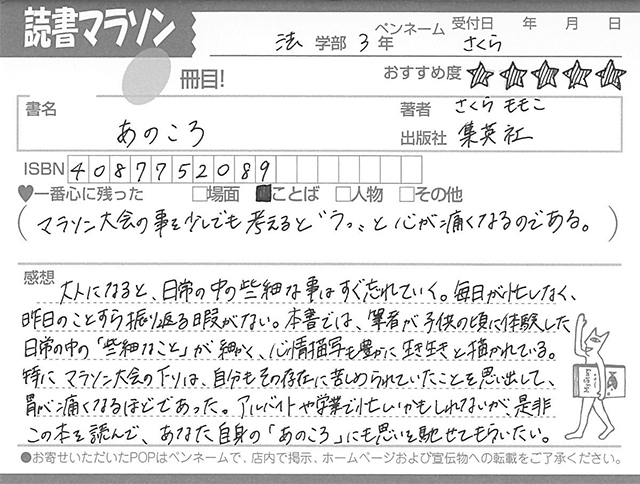 読書マラソン
法 学部 3 年 ペンネーム さくら 受付日 年 月 日
冊目! おすすめ度 ★★★★★
書名 あのころ 著者 さくら ももこ
出版社 集英社
ISBN 4087752089
♥一番心に残った □場面 ■ことば □人物 □その他
(マラソン大会の事を少しでも考えると"うっ"と心が痛くなるのである。)
感想
大人になると、日常の中の些細な事はすぐ忘れていく。毎日が忙しなく、
昨日のことすら振り返る暇がない。本書では、筆者が子供の頃に体験した
日常の中の「些細なこと」が細かく、心情描写も豊かに生き生きと描かれている。
特にマラソン大会の下りは、自分もその存在に苦しめられていたことを思い出して、
胃が痛くなるほどであった。アルバイトや学業で忙しいかもしれないが、是非
この本を読んで、あなた自身の「あのころ」にも思いを馳せてもらいたい。
●お寄せいただいたPOPはペンネームで、店内で掲示、ホームページおよび宣伝物への転載をご了承ください。